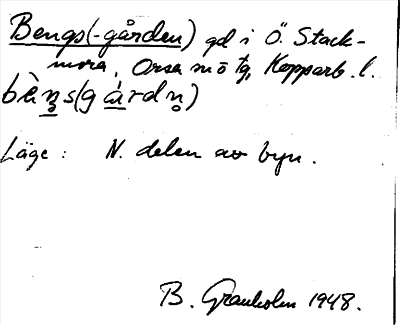 Bengs(-gården) gd i Ö. Stack-
mora, Orsa sn ö tg, Kopparb. l.
bὲn̥s(gárdn̥)
Läge: N. delen av byn.
B. Granholm 1948.